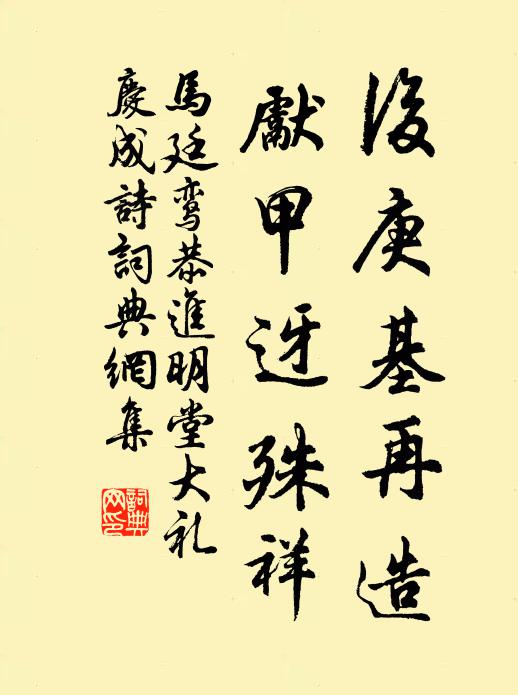 後庚基再造
獻甲迓殊祥
馬廷鸾恭進明堂大礼
慶成詩詞典網集
詞典网印